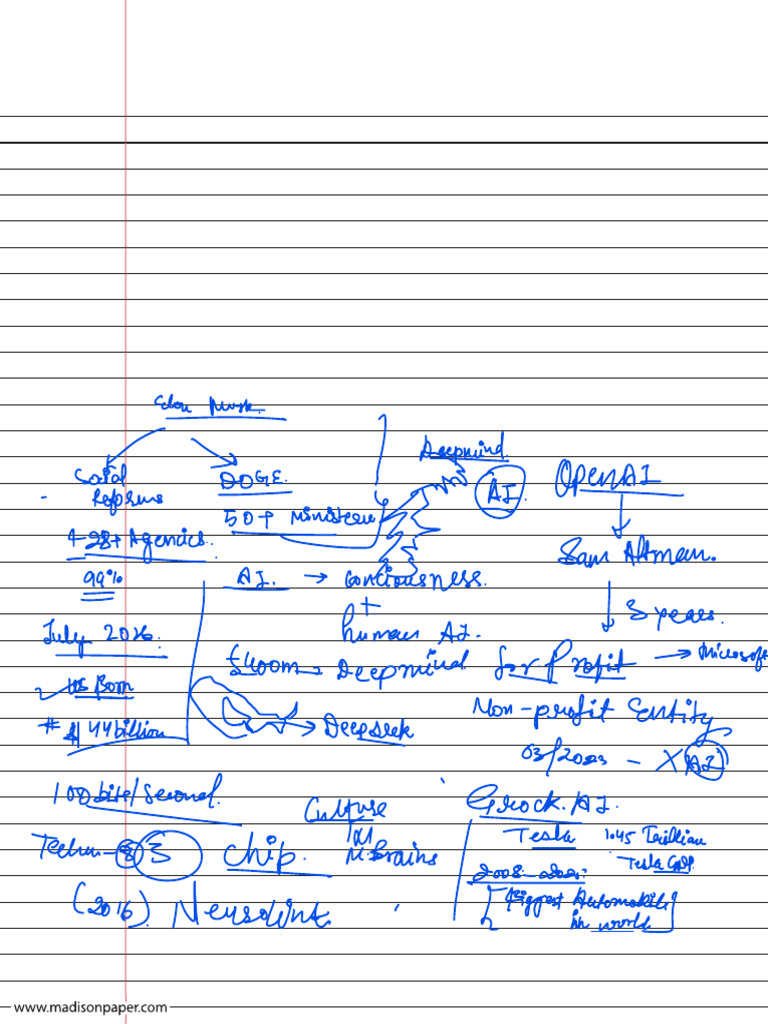 Elon Musk
Deepmind
Social
Reforms
DOGE
AI.
OPENAI
50+ Ministeri
428+ Agencies.
Sam Altman.
99%
AI. → Conciousness.
+
human AI.
3 years.
July 2026
£400m → Deepmind
for Profit → Microsoft
US Born
Non-profit Entity
# $ 44 billion
→ Deepseek
03/2023 - XAI
100 bits/Second.
Culture
Grock.AI.
Tesla 1.45 Trillion
Tesla GDP
3 chip.
M.Brains
Biggest Automobile
in world
(2016). Neuralink
www.madisonpaper.com